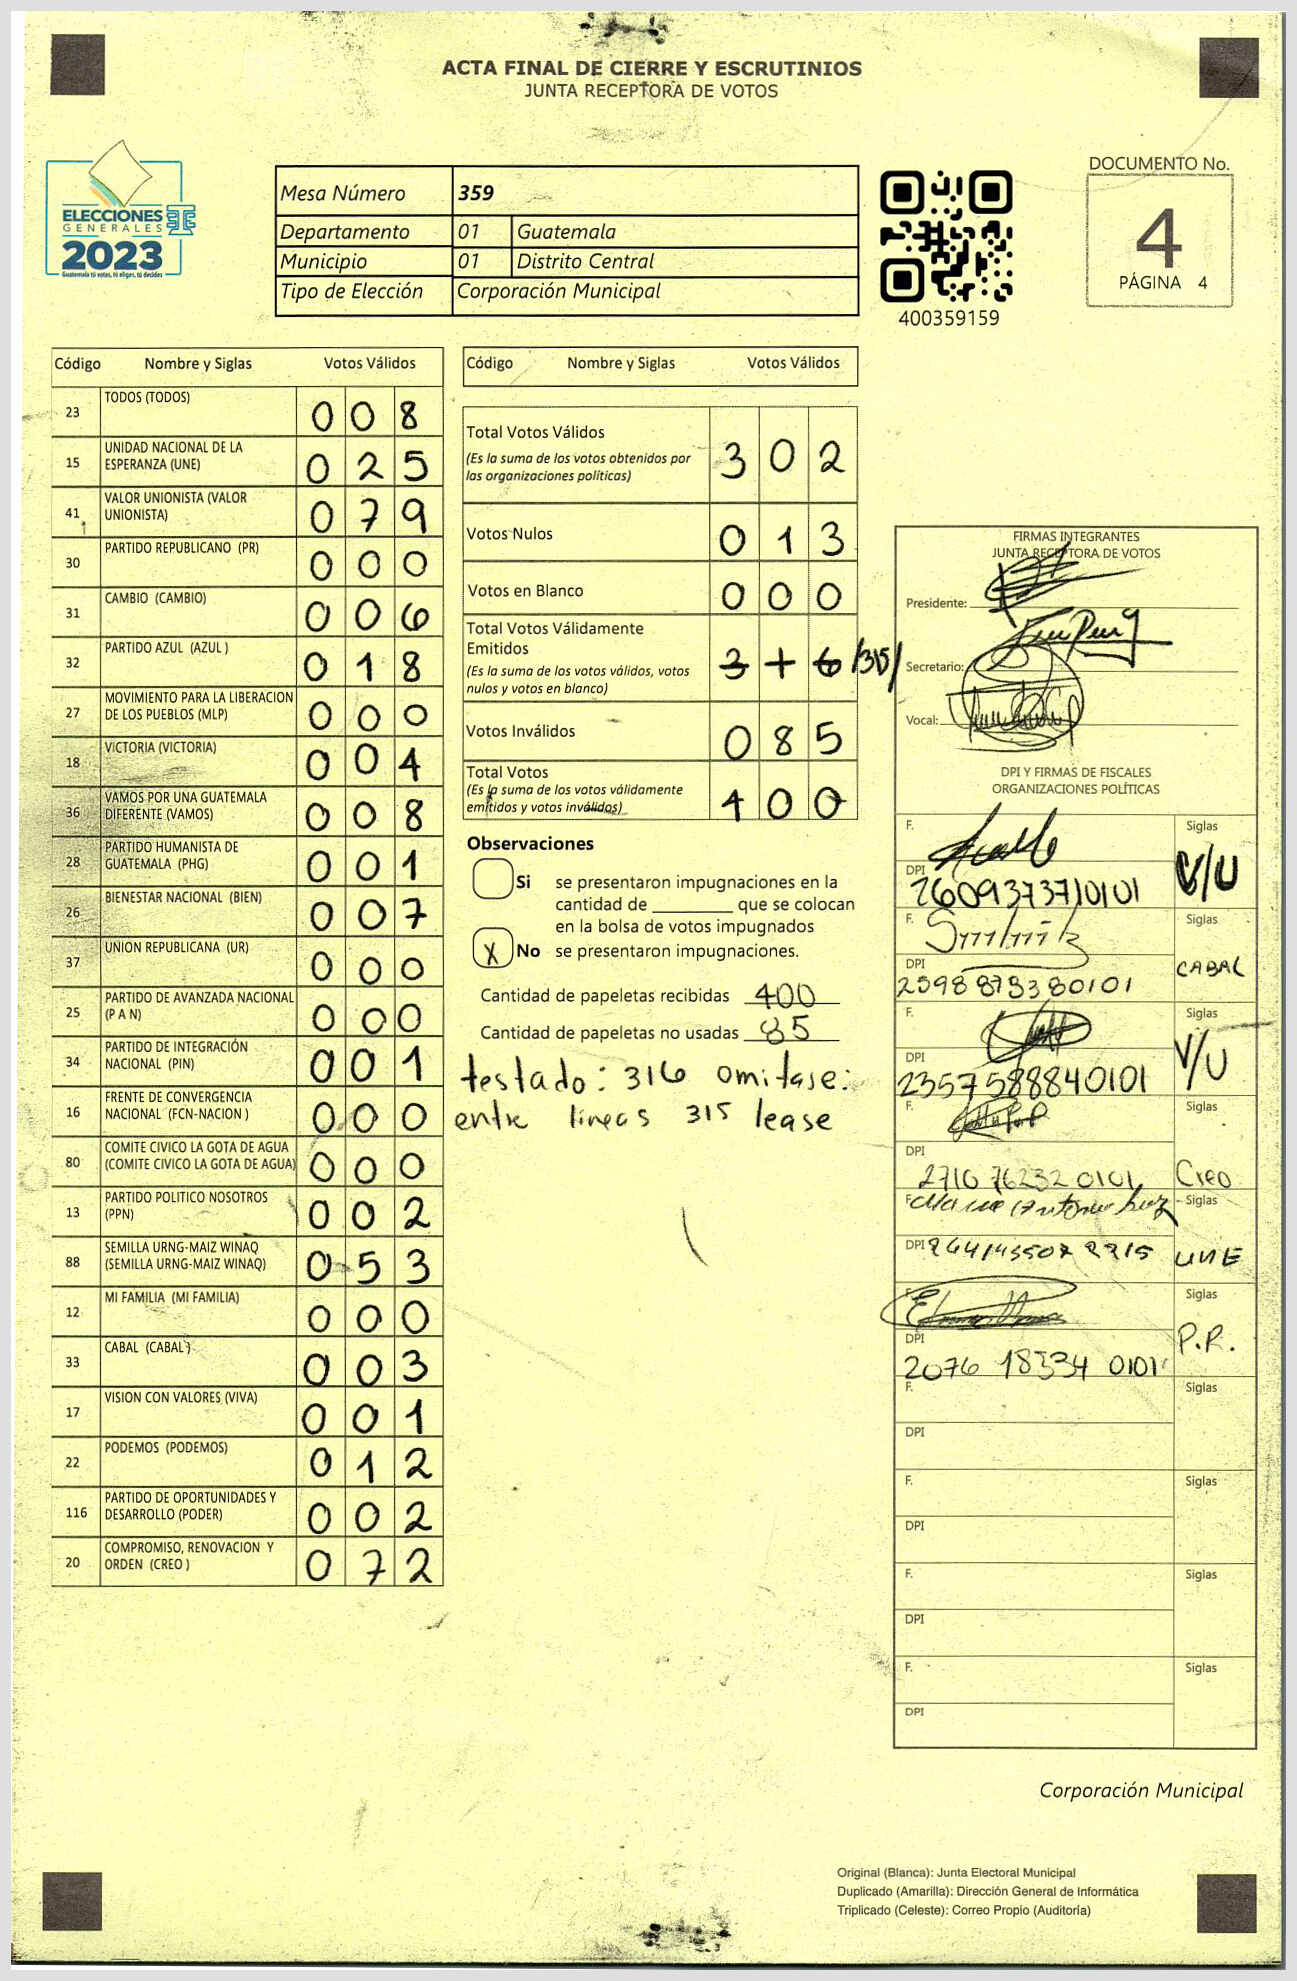 ACTA FINAL DE CIERRE Y ESCRUTINIOS
JUNTA RECEPTORA DE VOTOS
ELECCIONES
GENERALES
2023
Guatemala tú votas, tú eliges, tú decides
Mesa Número 359
Departamento 01 Guatemala
Municipio 01 Distrito Central
Tipo de Elección Corporación Municipal
400359159
DOCUMENTO No.
4
PÁGINA 4
Código Nombre y Siglas Votos Válidos
23 TODOS (TODOS) 0 0 8
15 UNIDAD NACIONAL DE LA
ESPERANZA (UNE) 0 2 5
41 VALOR UNIONISTA (VALOR
UNIONISTA) 0 7 9
30 PARTIDO REPUBLICANO (PR) 0 0 0
31 CAMBIO (CAMBIO) 0 0 6
32 PARTIDO AZUL (AZUL ) 0 1 8
27 MOVIMIENTO PARA LA LIBERACION
DE LOS PUEBLOS (MLP) 0 0 0
18 VICTORIA (VICTORIA) 0 0 4
36 VAMOS POR UNA GUATEMALA
DIFERENTE (VAMOS) 0 0 8
28 PARTIDO HUMANISTA DE
GUATEMALA (PHG) 0 0 1
26 BIENESTAR NACIONAL (BIEN) 0 0 7
37 UNION REPUBLICANA (UR) 0 0 0
25 PARTIDO DE AVANZADA NACIONAL
(P A N) 0 0 0
34 PARTIDO DE INTEGRACIÓN
NACIONAL (PIN) 0 0 1
16 FRENTE DE CONVERGENCIA
NACIONAL (FCN-NACION ) 0 0 0
80 COMITE CIVICO LA GOTA DE AGUA
(COMITE CIVICO LA GOTA DE AGUA) 0 0 0
13 PARTIDO POLITICO NOSOTROS
(PPN) 0 0 2
88 SEMILLA URNG-MAIZ WINAQ
(SEMILLA URNG-MAIZ WINAQ) 0 5 3
12 MI FAMILIA (MI FAMILIA) 0 0 0
33 CABAL (CABAL) 0 0 3
17 VISION CON VALORES (VIVA) 0 0 1
22 PODEMOS (PODEMOS) 0 1 2
116 PARTIDO DE OPORTUNIDADES Y
DESARROLLO (PODER) 0 0 2
20 COMPROMISO, RENOVACION Y
ORDEN (CREO ) 0 7 2
Código Nombre y Siglas Votos Válidos
Total Votos Válidos 3 0 2
(Es la suma de los votos obtenidos por
las organizaciones políticas)
Votos Nulos 0 1 3
Votos en Blanco 0 0 0
Total Votos Válidamente
Emitidos 3 1 6 /315/
(Es la suma de los votos válidos, votos
nulos y votos en blanco)
Votos Inválidos 0 8 5
Total Votos 4 0 0
(Es la suma de los votos válidamente
emitidos y votos inválidos)
Observaciones
Si se presentaron impugnaciones en la
cantidad de ________ que se colocan
en la bolsa de votos impugnados
X No se presentaron impugnaciones.
Cantidad de papeletas recibidas 400
Cantidad de papeletas no usadas 85
testado: 316 omitase:
entre lineas 315 lease
FIRMAS INTEGRANTES
JUNTA RECEPTORA DE VOTOS
Presidente:
Secretario:
Vocal:
DPI Y FIRMAS DE FISCALES
ORGANIZACIONES POLÍTICAS
F. Siglas
DPI V/U
2609373710101
F. Siglas
DPI CABAL
2598873380101
F. Siglas
DPI V/U
2357588840101
F. Siglas
DPI
2710 76232 0101 Creo
F. Siglas
DPI UNE
Siglas
DPI P.R.
2076 18334 0101
F. Siglas
DPI
F. Siglas
DPI
F. Siglas
DPI
F. Siglas
DPI
Corporación Municipal
Original (Blanca): Junta Electoral Municipal
Duplicado (Amarilla): Dirección General de Informática
Triplicado (Celeste): Correo Propio (Auditoría)